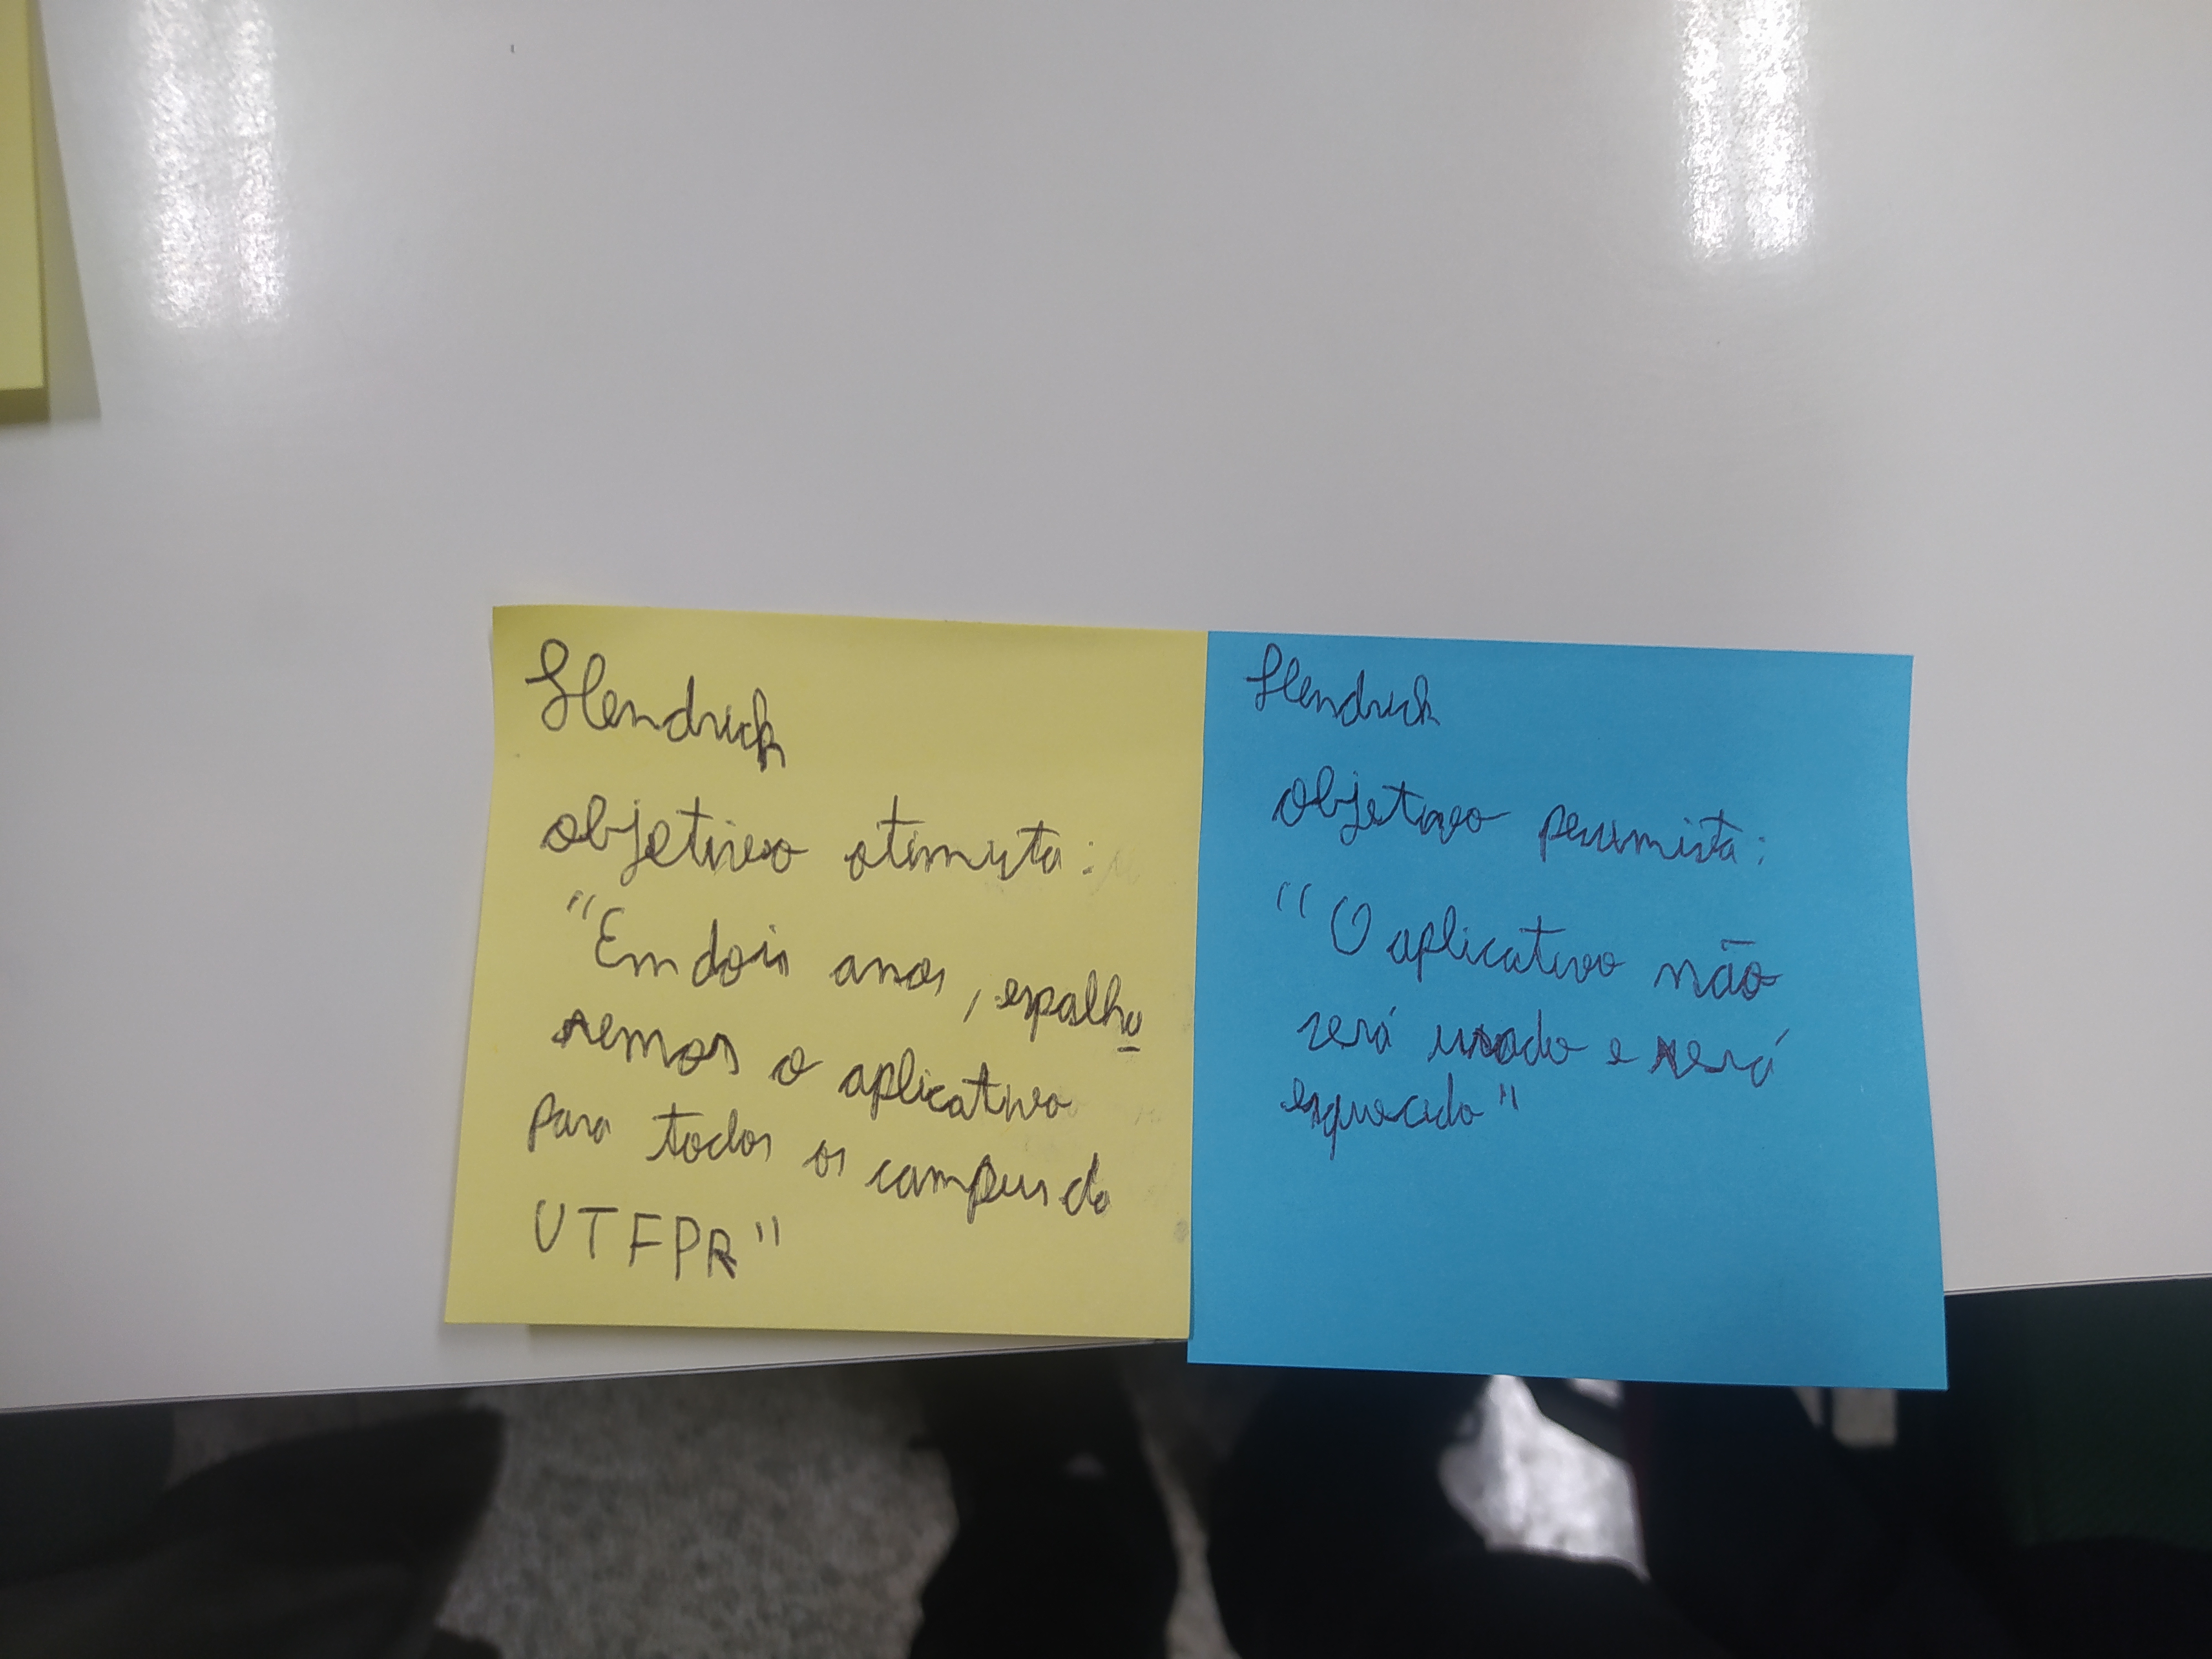 Hendrick
objetivo otimista:
"Em dois anos, espalha
remos o aplicativo
para todos os campus da
UTFPR"
Hendrick
objetivo pessimista:
"O aplicativo não
será usado e será
esquecido"